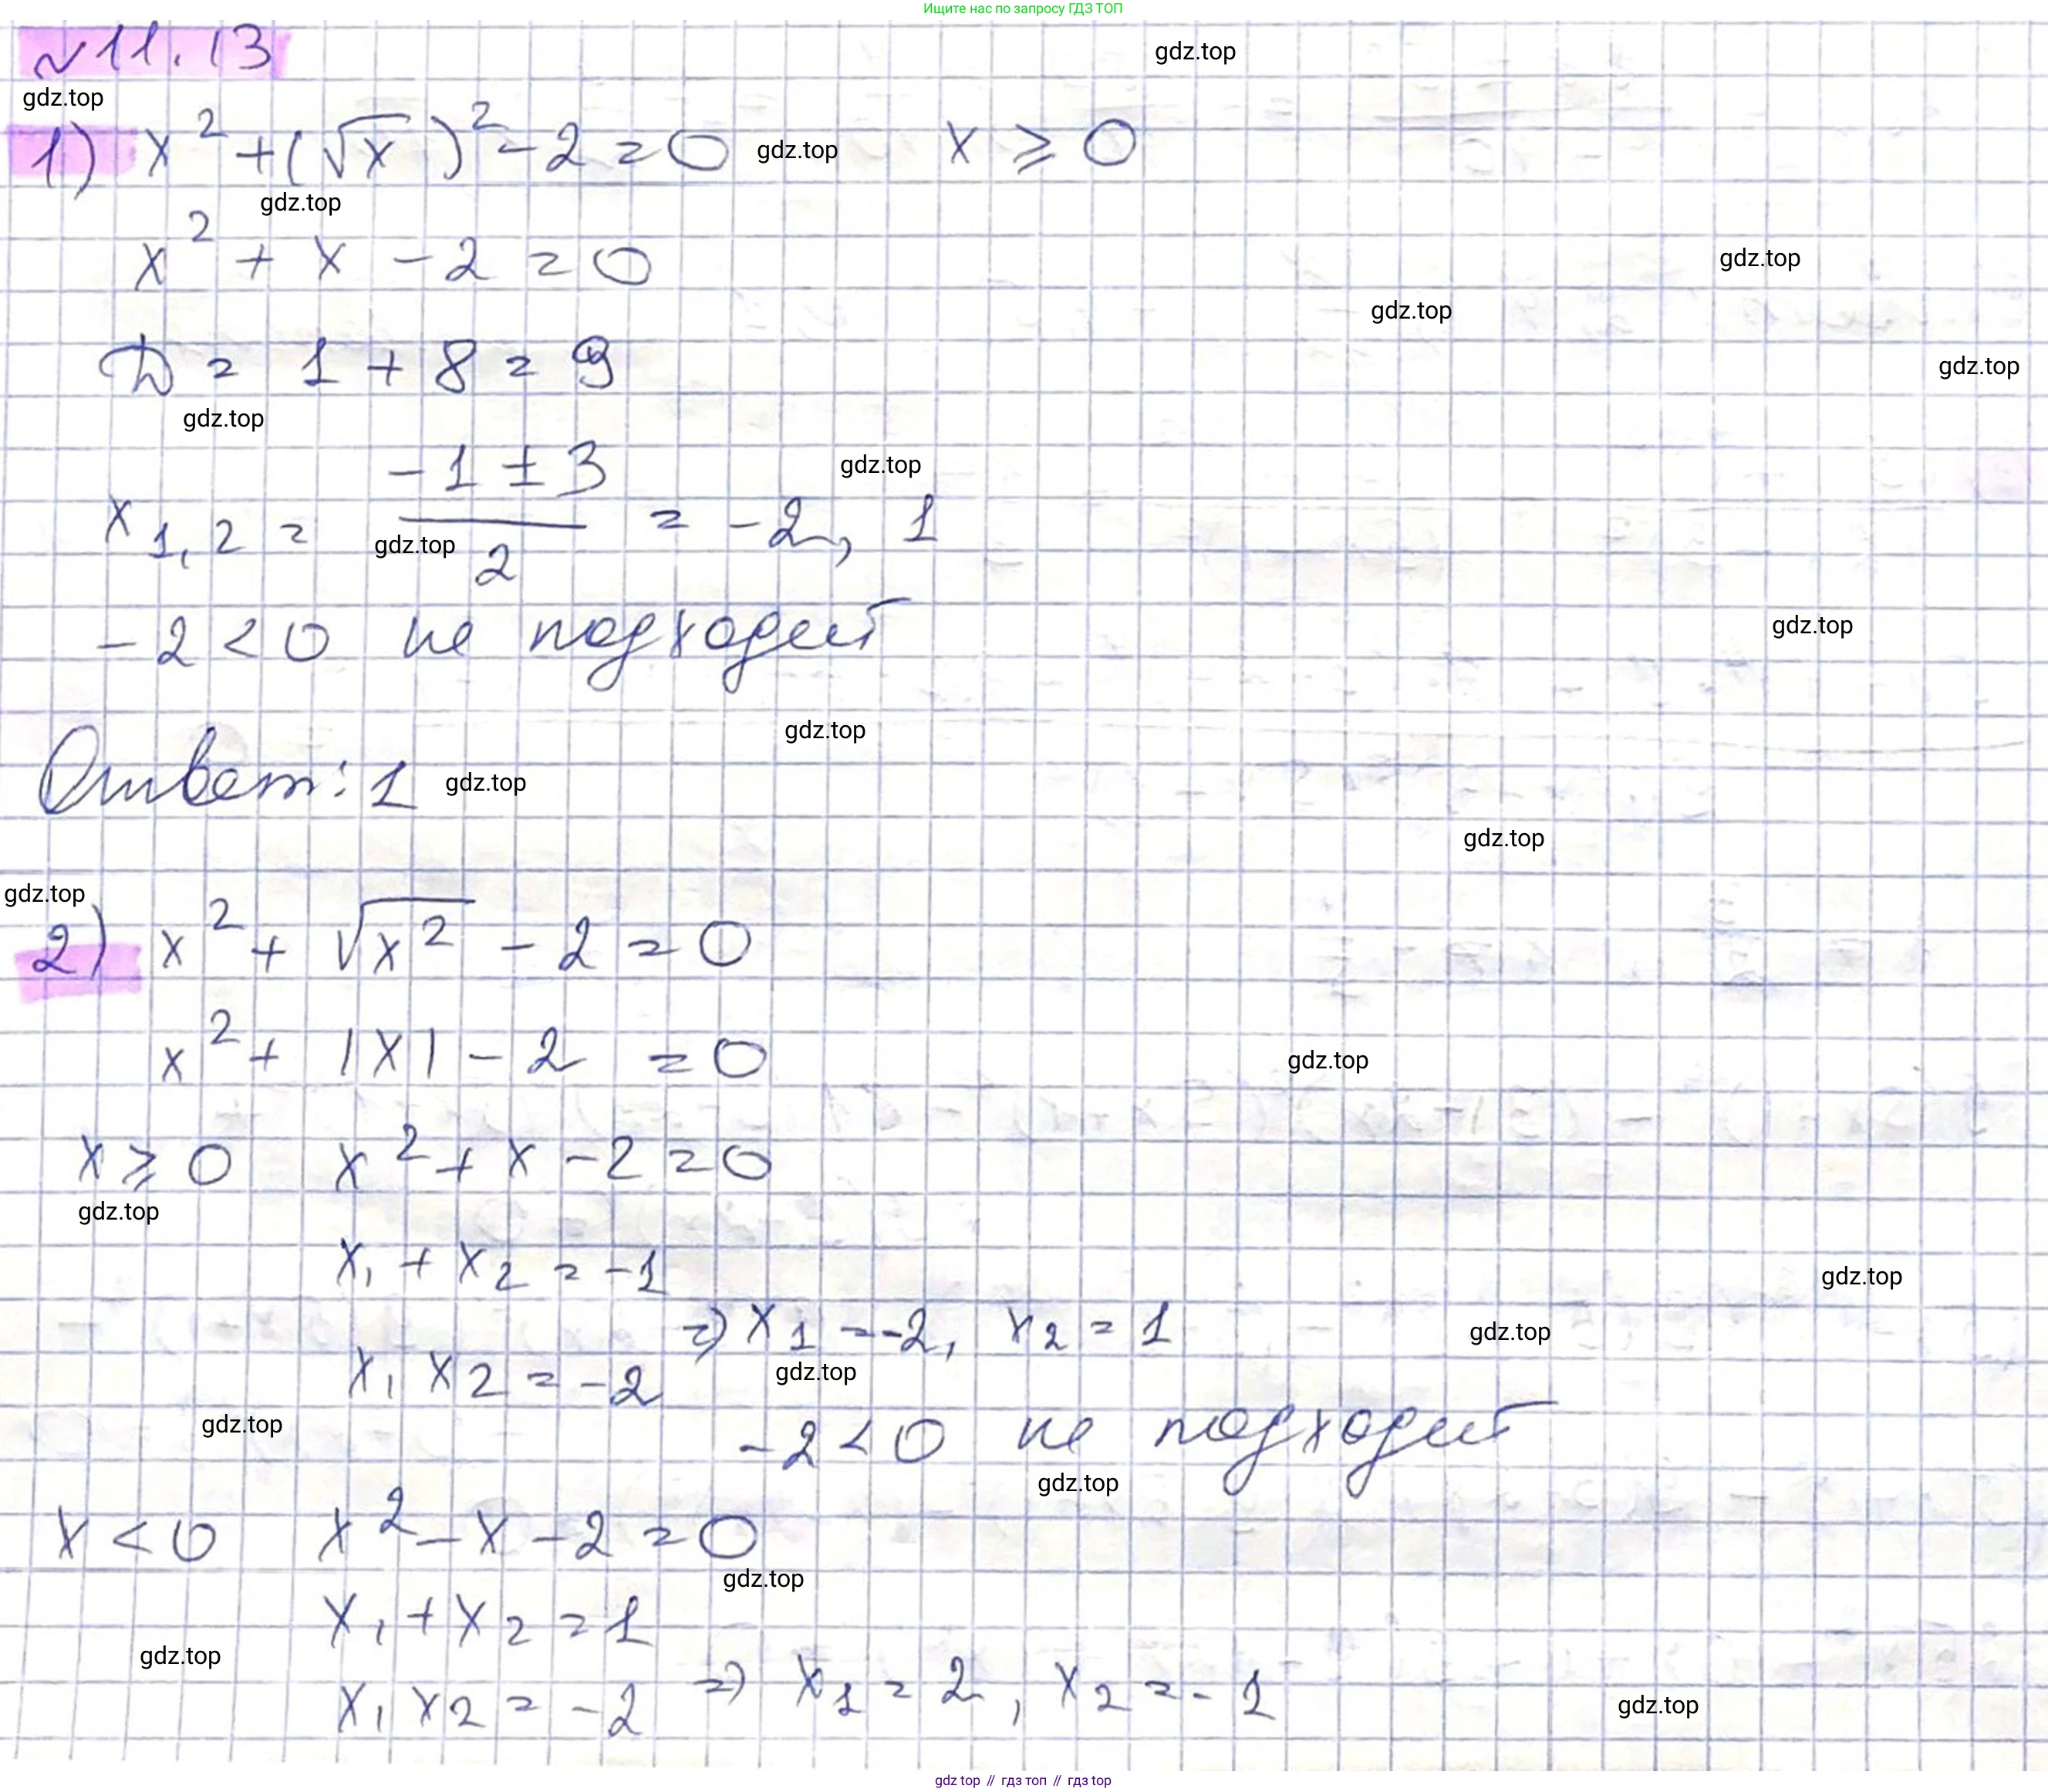 Ищите нас по запросу ГДЗ ТОП
№ 11.13
gdz.top
gdz.top
1) x² + (√x)² - 2 = 0 gdz.top x ⩾ 0
gdz.top
x² + x - 2 = 0
gdz.top
gdz.top
D = 1 + 8 = 9
gdz.top
gdz.top
gdz.top
x₁,₂ = (-1 ± 3)/2 = -2, 1
gdz.top
-2 < 0 не подходит
gdz.top
gdz.top
Ответ: 1 gdz.top
gdz.top
gdz.top
2) x² + √x² - 2 = 0
x² + |x| - 2 = 0
gdz.top
x ⩾ 0 x² + x - 2 = 0
gdz.top
x₁ + x₂ = -1
gdz.top
=> x₁ = -2, x₂ = 1
gdz.top
x₁ x₂ = -2
gdz.top
gdz.top
-2 < 0 не подходит
gdz.top
x < 0 x² - x - 2 = 0
gdz.top
x₁ + x₂ = 1
gdz.top
x₁ x₂ = -2 => x₁ = 2, x₂ = -1
gdz.top
gdz top // гдз топ // гдз top